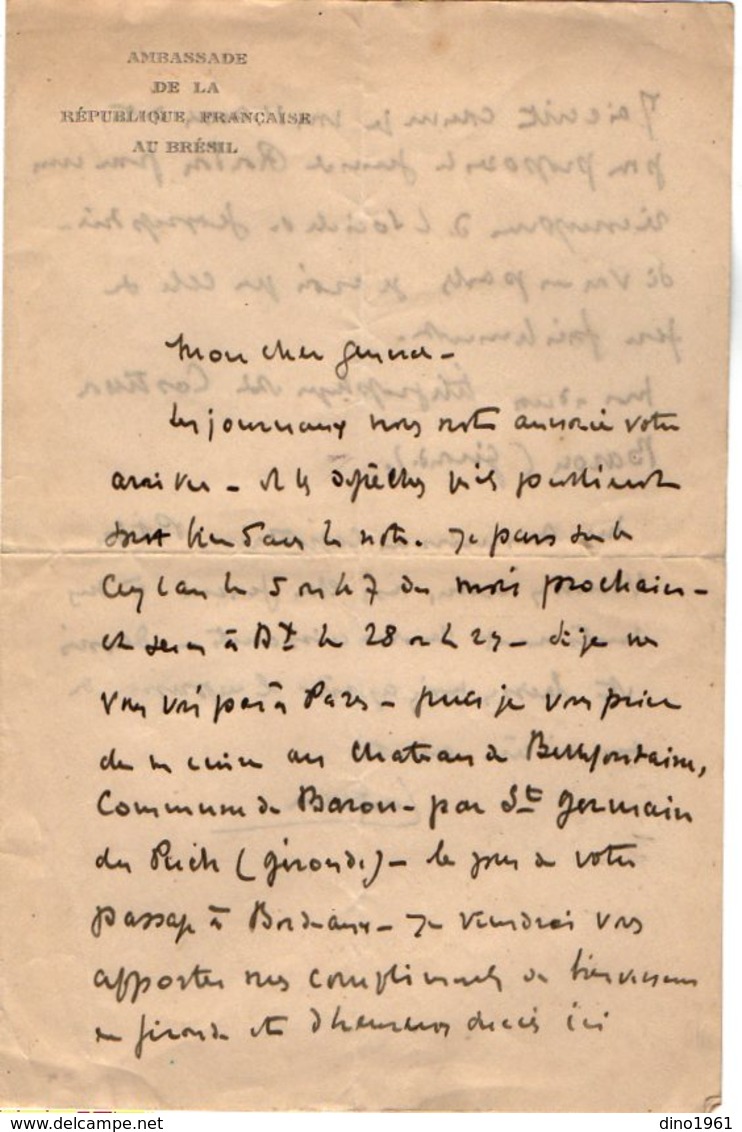 AMBASSADE
DE LA
RÉPUBLIQUE FRANÇAISE
AU BRÉSIL
Mon cher général -
Les journaux nous ont annoncé votre
arrivée - et les dépêches qu'ils publient
sont bien dans la note. Je pars sur le
Ceylan le 5 ou le 7 du mois prochain -
et serai à Bx le 28 ou le 29 - si je ne
vous vois pas à Paris - puis je vous prier
de m'écrire au Chateau de Bellefontaine,
Commune de Baron - par St Germain
du Puch (Gironde) - le jour de votre
passage à Bordeaux - Je viendrai vous
apporter mes compliments de bienvenue
en Gironde et d'heureux succès ici
dino1961